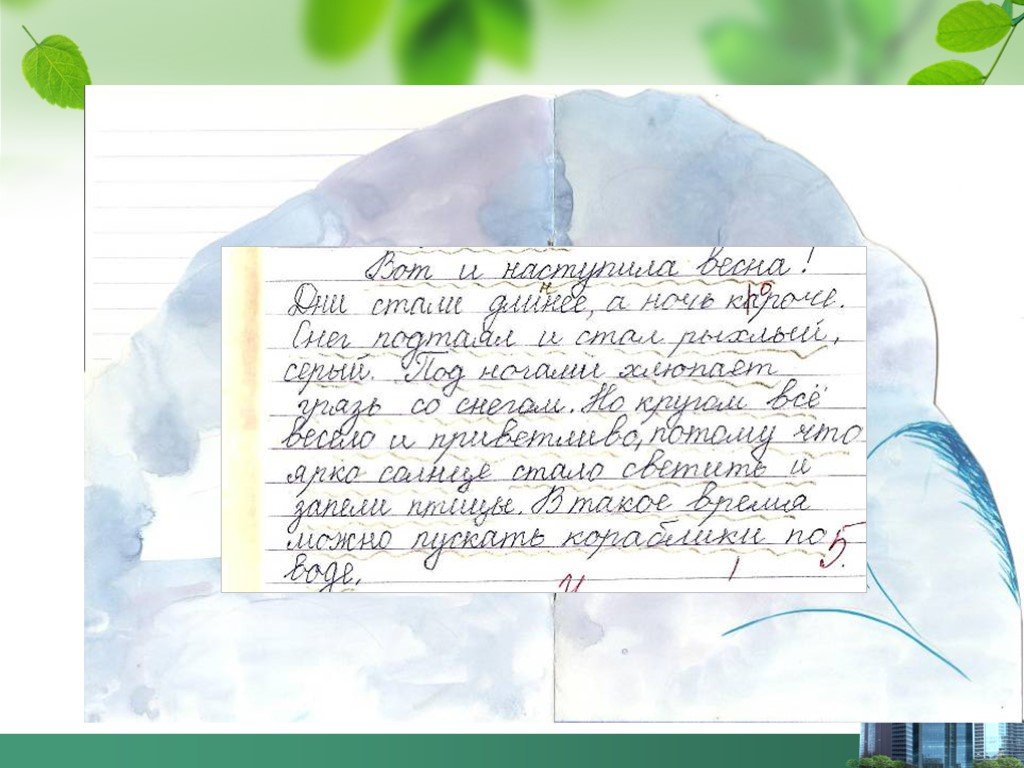 Вот и наступила весна!
Дни стали длиннее, а ночь короче.
Снег подтаял и стал рыхлый,
серый. Под ногами хлюпает
грязь со снегом. Но кругом всё
весело и приветливо, потому что
ярко солнце стало светить и
запели птицы. В такое время
можно пускать кораблики по
воде.
5